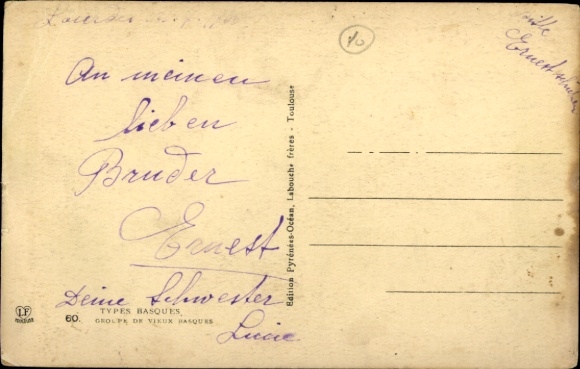 An meinen
lieben
Bruder
Ernest
Deine Schwester
Lucie
Ernest
Edition Pyrénées-Océan, Labouche frères - Toulouse
LF
60.
TYPES BASQUES
GROUPE DE VIEUX BASQUES